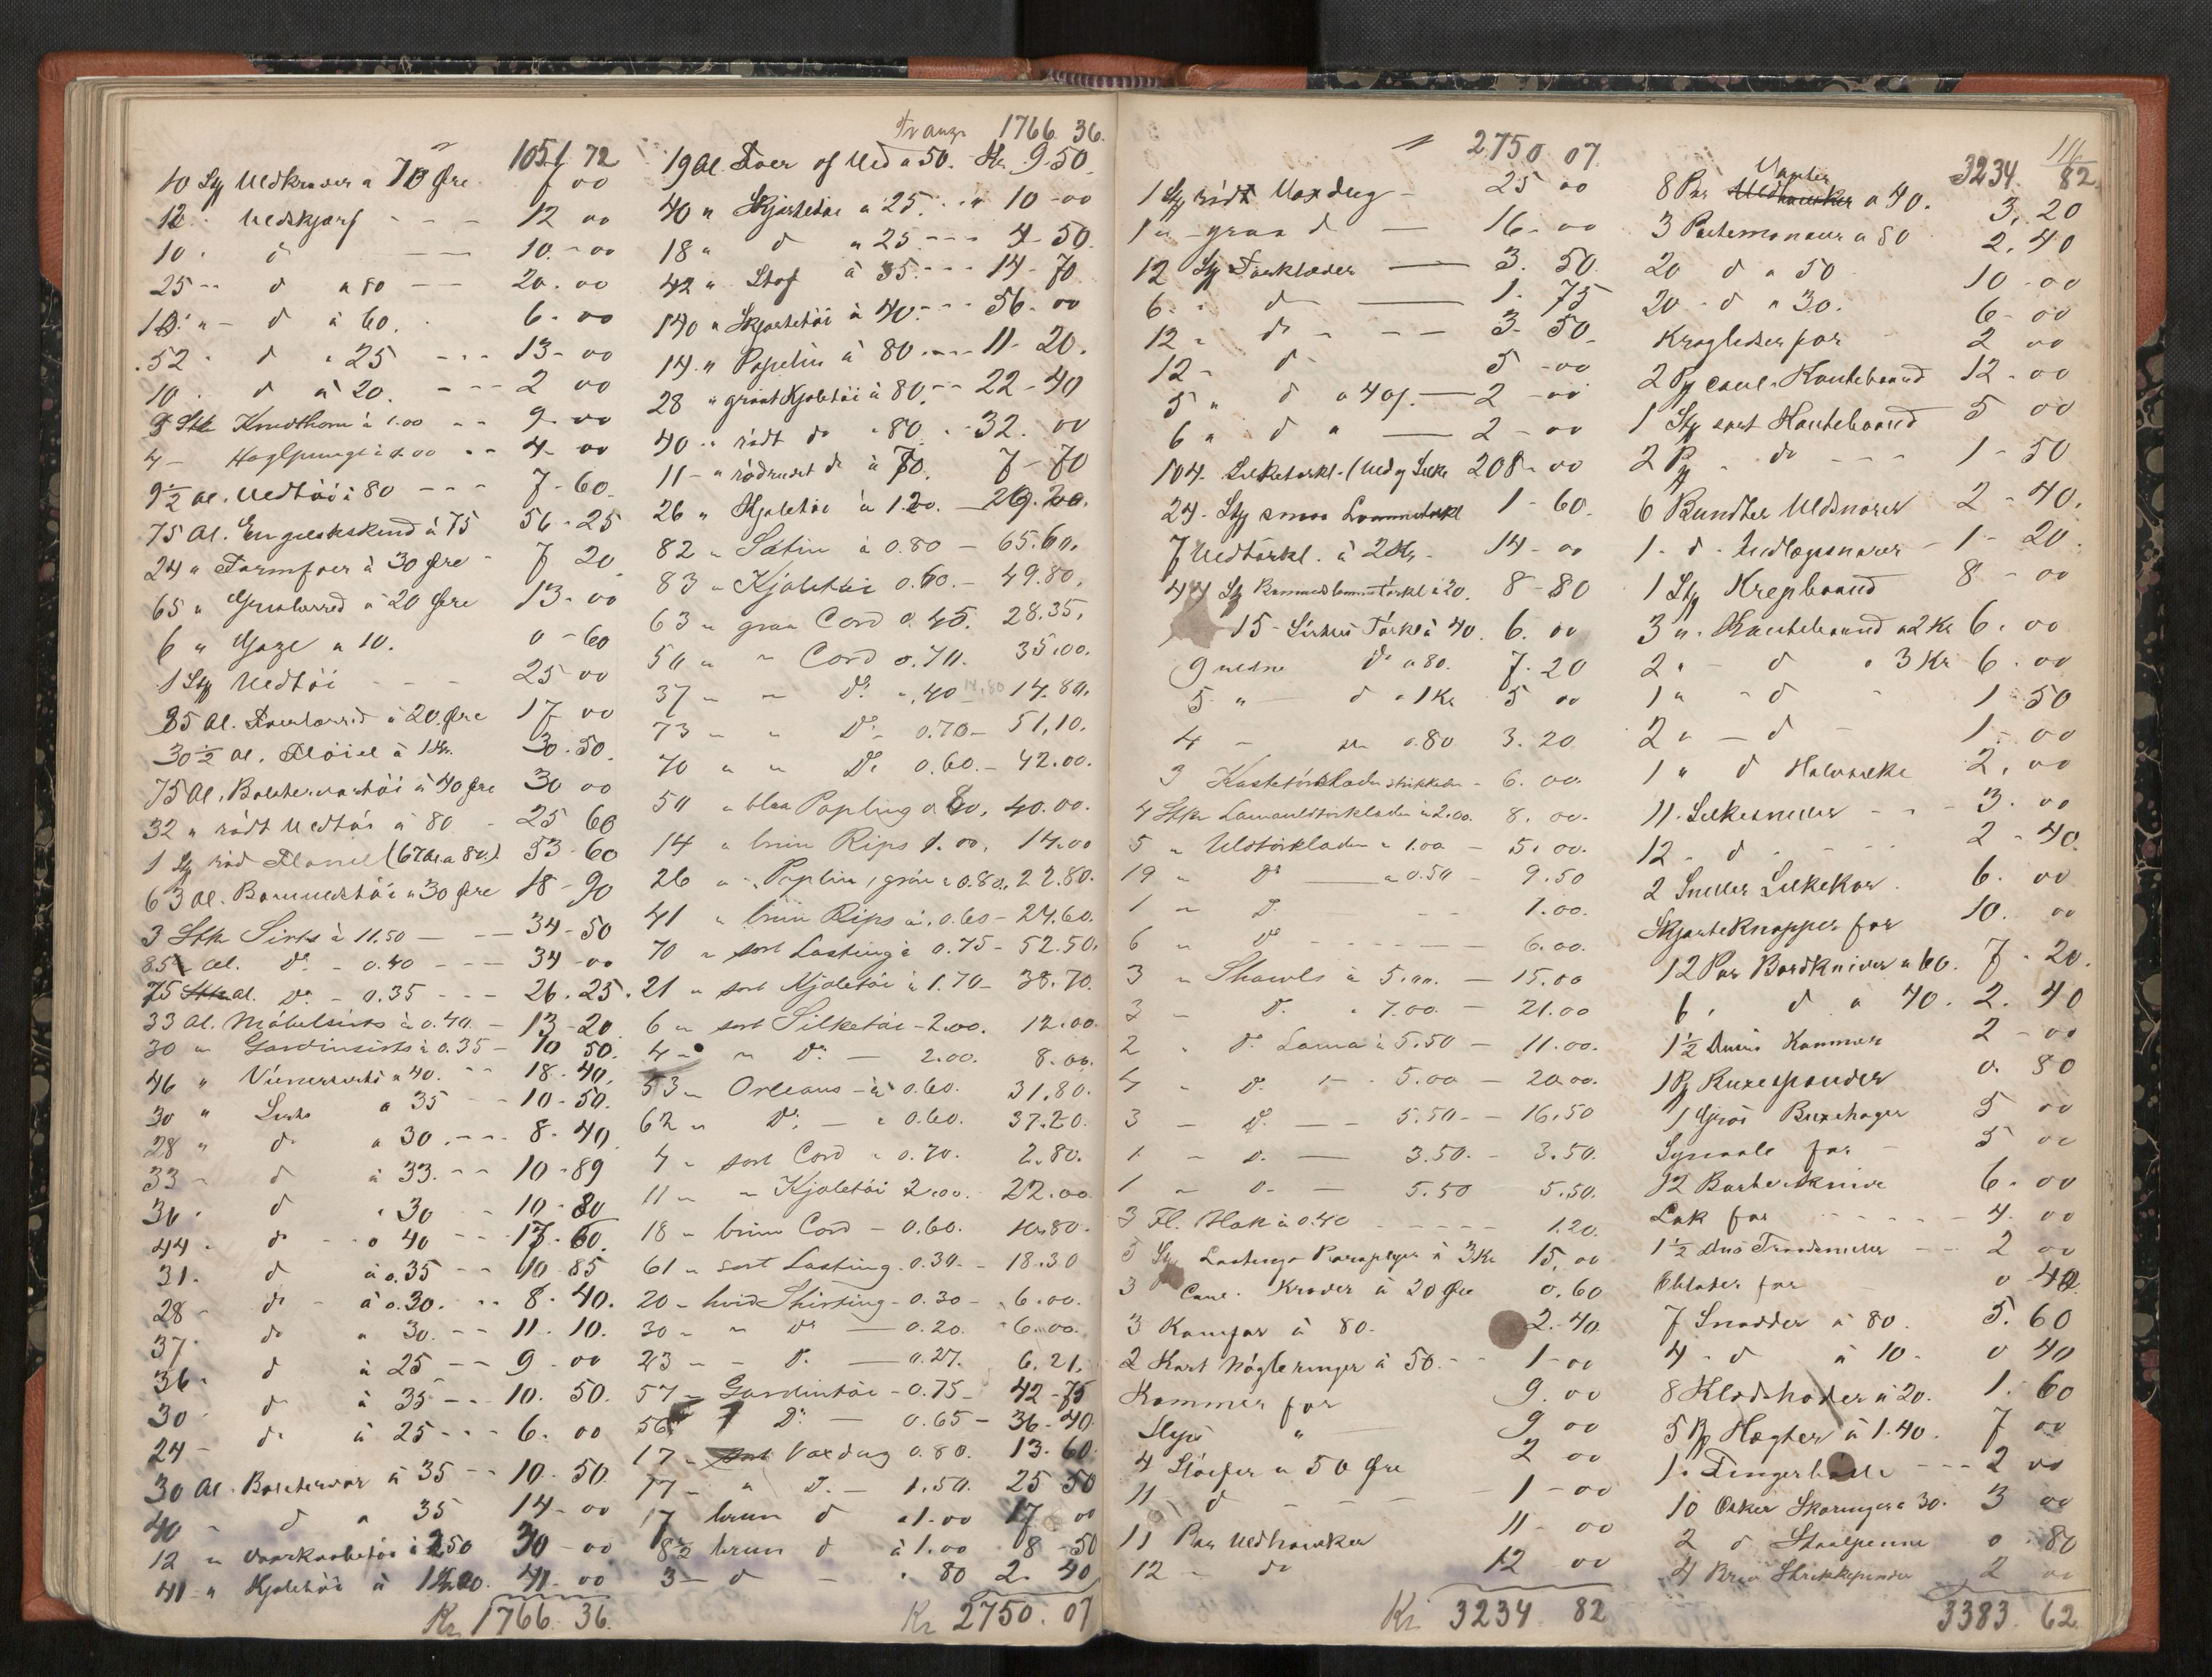 " 1051 72
10 Stk Uldkraver a 70 Øre 7 00
12 " Uldskjærf - - - 12 00
10 " d - - 10 - 00
25 - - d a 80 - - 20 . 00
10 " - d à 60 . 6 - 00
52 " d " 25 - - - 13 - 00
10 . d à 20 . - - - 2 00
9 Stk Knudthorn à 1.00 - - 9 - 00
4 - Haglpunge à 1.00 - - 4 - 00
9½ Al. Uldtøi à 80 - - - 7 - 60
75 Al. Engelskskind à 75 56 - 25
24 " Farmfoer à 30 Øre - 7 20
65 " à 20 Øre 13 - 00
6 " Gaze a 10 . 0 - 60
1 Stk Uldtøi - - - 25 00
85 Al. à 20 Øre 17 00
30½ Al. Fløiel à 1 Kr. 30 . 50
75 Al. Bolstervarstøi à 40 Øre 30 00
32 " rødt Uldtøi à 80 - 25 60
1 Stk rød Flanel (67 Al. a 80.) 53 - 60
63 Al. Bomuldstøi a 30 Øre 18 - 90
3 Stk Sirts à 11.50 — - - 34 - 50
85 Al. Do - 0.40 - - - 34 - 00
75 Al. Do - 0.35 - - - 26 . 25
33 Al. Møbelsirts à 0.40 - 13 - 20
30 " Gardinsirts à 0.35 - 10 50.
46 " a 40. - - 18 . 40.
30 " Sirts a 35 - - 10 - 50.
28 " do a 30 . - - - 8 - 40
33 - d à 33. - - 10 - 89
36 . d " 30 - - 10 - 80
44 - do - a 40 - - 17 - 60.
31 . d à 0.35 - - 10 85
28 - do - à 0.30. - - 8 . 40.
37 . do a 30. - - 11 . 10.
36 . d à 25 - - 9 - 00
30 - do à 35 - - - 10 . 50.
24 - do à 25 - - - 6 . 00
30 Al. Bolstervar à 35 - - 10 . 50
40 " d a 35 14 - 00
12 " Vaarkaabetøi à 250 30 - 00
41 " Kjoletøi à 1.00. 41 - 00
Kr 1766 . 36.
Transp 1766 36.
19 Al. Foer af Uld a 50. Kr. 9 50
40 " Skjortetøi a 25 . - " 10 - 00
18 " d " 25 - - - 4 - 50.
42 " Stof à 35. - - - 14 - 70
140 " Skjortetøi à 40. - - 56 - 00
14 . " Popelin à 80 . - - - 11 - 20.
28 " grønt Kjoletøi à 80. - - 22 - 40
40 " rødt do " 80 - - 32 . 00
11 - " rødrudet do à 70. 7 - 70
26 " Kjoletøi à 1.20. — 29.20.
82 " Satin à 0.80 — 65.60.
83 " Kjoletøi 0.60. — 49.80.
63 " graa Cord 0.45. 28.35.
50 " " Cord 0.70. 35.00.
37 " " Do " 40 14.80 14.80.
73 " " Do 0.70 - 51.10.
70 " " Do 0.60. - 42.00.
50 " blaa Popling a 80. 40.00.
14 " brun Rips 1.00. 14.00
26 " " Poplin, grøn a 0.80. 22.80.
41 " brun Rips à 0.60 - 24.60.
70 " sort Lasting à 0.75 - 52.50.
21 " sort Kjoletøi à 1.70 - 38.70.
6 " sort Silketøi - 2.00. 12.00.
4 - " Do — 2.00. 8.00.
53 " Orleans - à 0.60. 31.80.
62 " Do — à 0.60. 37.20.
4 " sort Cord " 0.70. 2.80.
11 " " Kjoletøi 2.00. 22.00
18 " brun Cord - 0.60. 10.80.
61 " sort Lasting - 0.30. - 18.30
20 - hvid Shirting - 0.30 - 6.00.
30 - " Do — 0.20. 6.00.
23 - - Do — 0.27. 6.21.
57 - Gardintøi - 0.75 - 42 - 75
56 " Do — 0.65 - 36 - 40.
17 - Voxdug 0.80. 13 . 60
17 - " Do — 1.50. 25 50
17 brun d a 1.00 17 00
8½ brun d à 1.00 8 - 50
3 - d — " 80 2 . 40
Kr 2750 . 07
" 2750 07.
1 Stk rødt Voxdug — 25 00
1 " - graa d — 16 - 00
12 Stk Tørklæder — 3. 50
6 . do — 1. 75
12 " do - - - 3 - 50
12 - do 5 - 00
5 " d a 40/. — 2 - 00
6 " d " — 2 - 00
104 - Silketørkl. (Uld og Silke 208 - 00
24 - Stk smaa Lommetørkl 1 - 60.
7 Uldtørkl. à 2 Kr. 14 - 00
44 Stk Bomuldslommetørkl à 20. 8 - 80
15 - Tørkl à 40. 6. 00
9 uldne do a 80. 7 . 20
5 " d " 1 Kr 5 00
4 - do a 80 3 . 20
3 strikkede - 6.00.
4 Stk Lamauldtørklæder à 2.00. 8.00.
5 " Uldtørklæder " 1.00 - 5.00.
19 " Do — a 0.50 - 9.50
1 " Do - - 1.00.
6 " Do - - - - 6.00.
3 " Shawls à 5.00. — 15.00
3 - Do " 7.00 - 21.00
2 " Do Lama à 5.50 - 11.00.
4 " Do - . 5.00 - 20.00.
3 - Do — - 5.50 - - 16.50
1 - Do — 3.50. - 3.50.
1 " D. — 5.50 5.50.
3 Fl. Blæk à 0.40 - - - - - 1.20.
5 Stk Lastings Paraplyer à 3 Kr 15. 00
3 " Coul. Kraver à 20 Øre 0.60
3 Kamfor à 80. 2.40
2 Kort Nøgleringe à 50 . - - 1 - 00
Kammer for 9 . 00
Slips " — 9 00
4 Sløifer a 50 Øre 2 00
11 - d - - - - 1 - 00
11 Par Uldhansker 11 - 00
12 - do 12 00
Kr. 3234 82
3234. 82
Vanter
8 Par Uldhansker a 40. 3. 20
3 Portemonæer a 80 2. 40
20 d a 50 10 - 00
20 - d " 30. 6 - 00
for 2 00
2 Pk coul. Kantebaand 12 - 00
1 Stk sort Kantebaand 5 00
2 Pk - do - - - 1 - 50
6 Bundter Uldsnorer 2 - 40.
1 - d - - 1 - 20
1 Stk Krepbaand 8 - 00
3 " Kantebaand a 2 Kr 6 . 00
2 " - d " 3 Kr 6 . 00
1 " - d - 1 50
2 " — d - 1 - 00
1 " d Halvsilke 2 . 00
11 - Silkesneller - - 3 . 00
12 - d - - - - 2 - 40.
2 Sneller 6. 00
Skjorteknapper for 10. 00
12 Par Bordkniver a 60. 7 - 20.
6 . d a 40. 2. 40
1½ Dusin Kammer 2 - 00
1 Pk Buxespænder 0. 80
1 Gros Buxehager 5 00
Synaale for 5 00
12 Barberknive 6 . 00
Lak for - - - - - 4 . 00
1½ Dus Traadsneller - - 2 00
Oblater for 0 40
7 Snadder à 80. 5. 60
4 - d à 10 - 0 40
8 à 20. 1. 60
5 Pk Hægter à 1.40. 7 00
1 " Fingerbølle - - - 2 00
10 Æsker a 30. 3 00
2 d Staalpenne 0 . 80
4 Breve Strikkepinde 2 00
3383 . 62